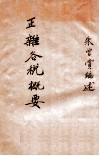 朱雪寶編述
正雜各税概要